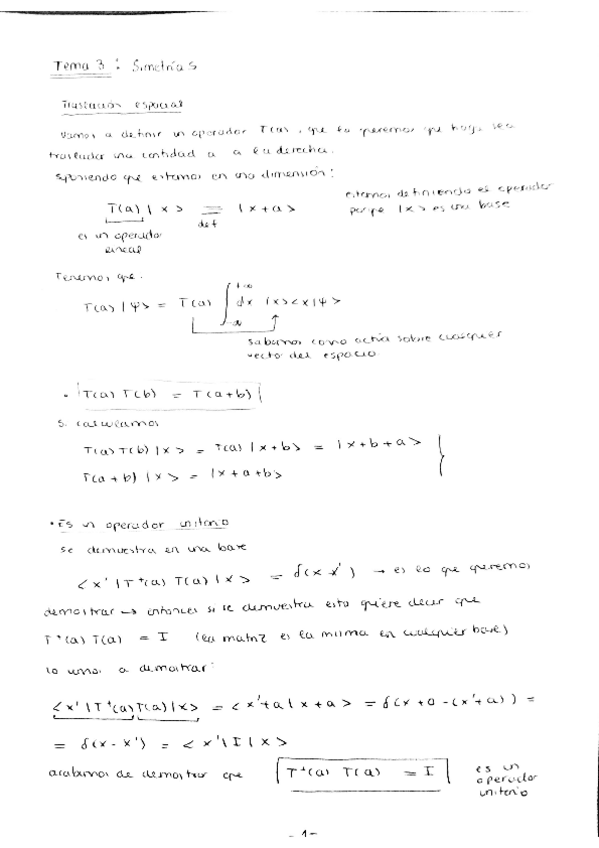 Tema 3 : Simetrías
Traslación espacial
Vamos a definir un operador T(a), que lo queremos que haga sea
trasladar una cantidad a a la derecha.
Suponiendo que estamos en una dimensión:
T(a) | x > = | x + a >
def
es un operador
lineal
estamos definiendo el operador
porque |x> es una base
Tenemos que:
T(a) | Ψ > = T(a) ∫_{-∞}^{+∞} dx |x><x|Ψ>
sabemos como actúa sobre cualquier
vector del espacio
• T(a) T(b) = T(a+b)
Si calculamos
T(a) T(b) | x > = T(a) | x + b > = | x + b + a >
T(a + b) | x > = | x + a + b >
• Es un operador unitario
se demuestra en una base
< x' | T⁺(a) T(a) | x > = δ(x - x') → es lo que queremos
demostrar → entonces si se demuestra esto quiere decir que
T⁺(a) T(a) = I (la matriz es la misma en cualquier base)
lo vamos a demostrar:
< x' | T⁺(a) T(a) | x > = < x' + a | x + a > = δ(x + a - (x' + a)) =
= δ(x - x') = < x' | I | x >
acabamos de demostrar que T⁺(a) T(a) = I
es un
operador
unitario
- 1 -